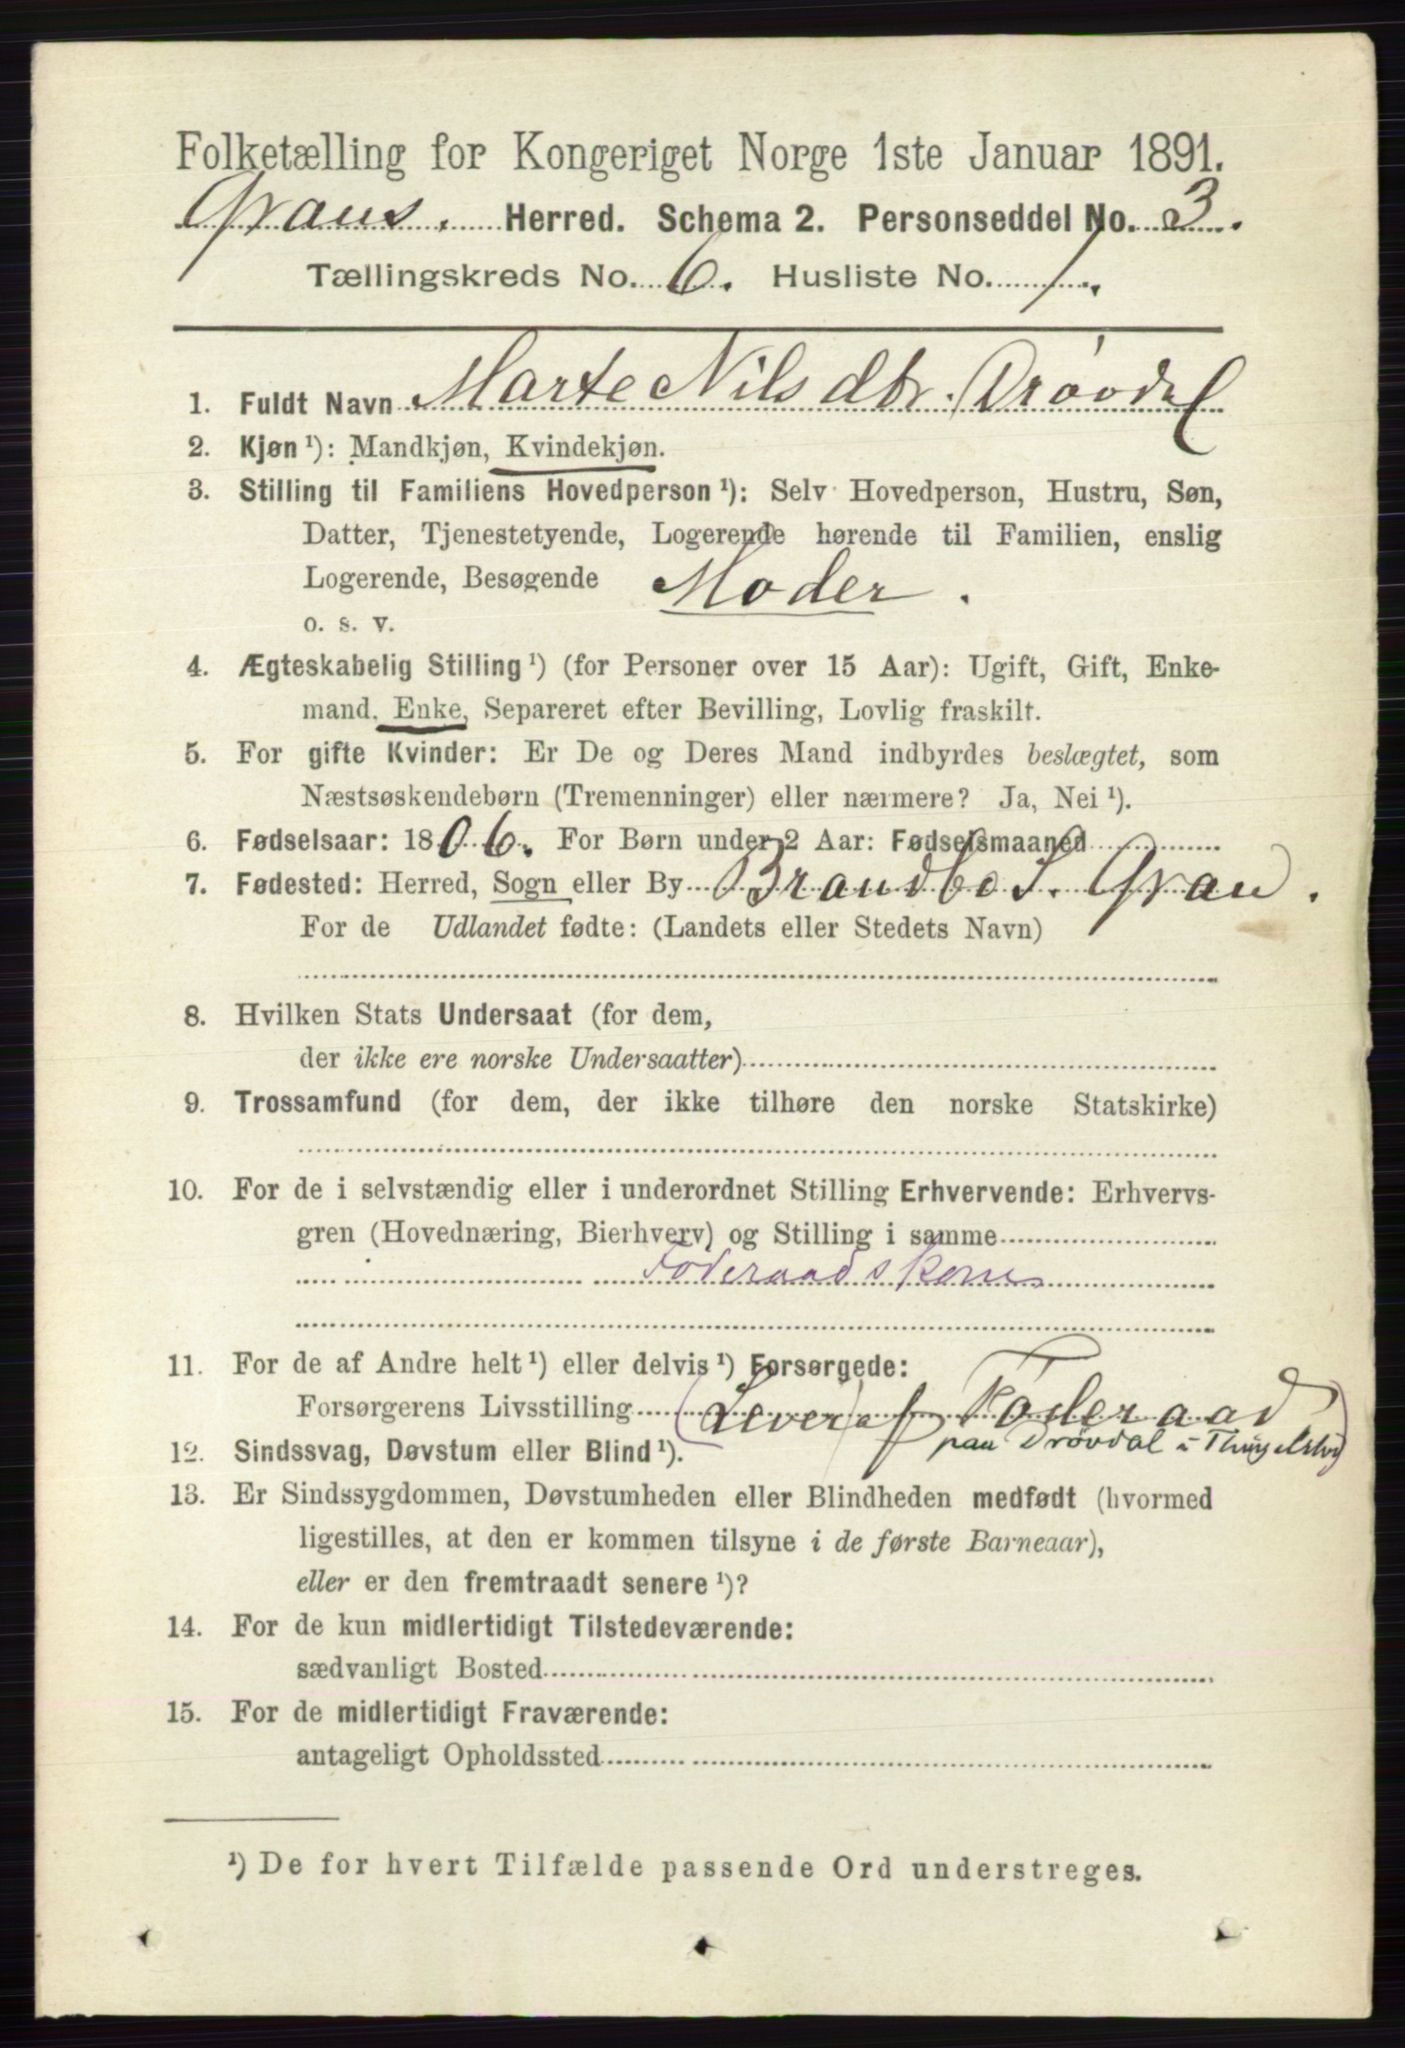 Folketælling for Kongeriget Norge 1ste Januar 1891.
Grans. Herred. Schema 2. Personseddel No. 3.
Tællingskreds No. 6. Husliste No. 1.
1. Fuldt Navn Marte Nilsdtr. Drövdal
2. Kjøn ¹): Mandkjøn, Kvindekjøn.
3. Stilling til Familiens Hovedperson ¹): Selv Hovedperson, Hustru, Søn,
Datter, Tjenestetyende, Logerende hørende til Familien, enslig
Logerende, Besøgende Moder.
o. s. v.
4. Ægteskabelig Stilling ¹) (for Personer over 15 Aar): Ugift, Gift, Enke-
mand, Enke, Separeret efter Bevilling, Lovlig fraskilt.
5. For gifte Kvinder: Er De og Deres Mand indbyrdes beslægtet, som
Næstsøskendebørn (Tremenninger) eller nærmere? Ja, Nei ¹).
6. Fødselsaar: 1806. For Børn under 2 Aar: Fødselsmaaned
7. Fødested: Herred, Sogn eller By Brandbo S. Gran.
For de Udlandet fødte: (Landets eller Stedets Navn)
8. Hvilken Stats Undersaat (for dem,
der ikke ere norske Undersaatter)
9. Trossamfund (for dem, der ikke tilhøre den norske Statskirke)
10. For de i selvstændig eller i underordnet Stilling Erhvervende: Erhvervs-
gren (Hovednæring, Bierhverv) og Stilling i samme
Föderaadskone
11. For de af Andre helt ¹) eller delvis ¹) Forsørgede:
Forsørgerens Livsstilling (Lever af Föderaad
paa Drövdal
12. Sindssvag, Døvstum eller Blind ¹).
13. Er Sindssygdommen, Døvstumheden eller Blindheden medfødt (hvormed
ligestilles, at den er kommen tilsyne i de første Barneaar),
eller er den fremtraadt senere ¹)?
14. For de kun midlertidigt Tilstedeværende:
sædvanligt Bosted
15. For de midlertidigt Fraværende:
antageligt Opholdssted
¹) De for hvert Tilfælde passende Ord understreges.